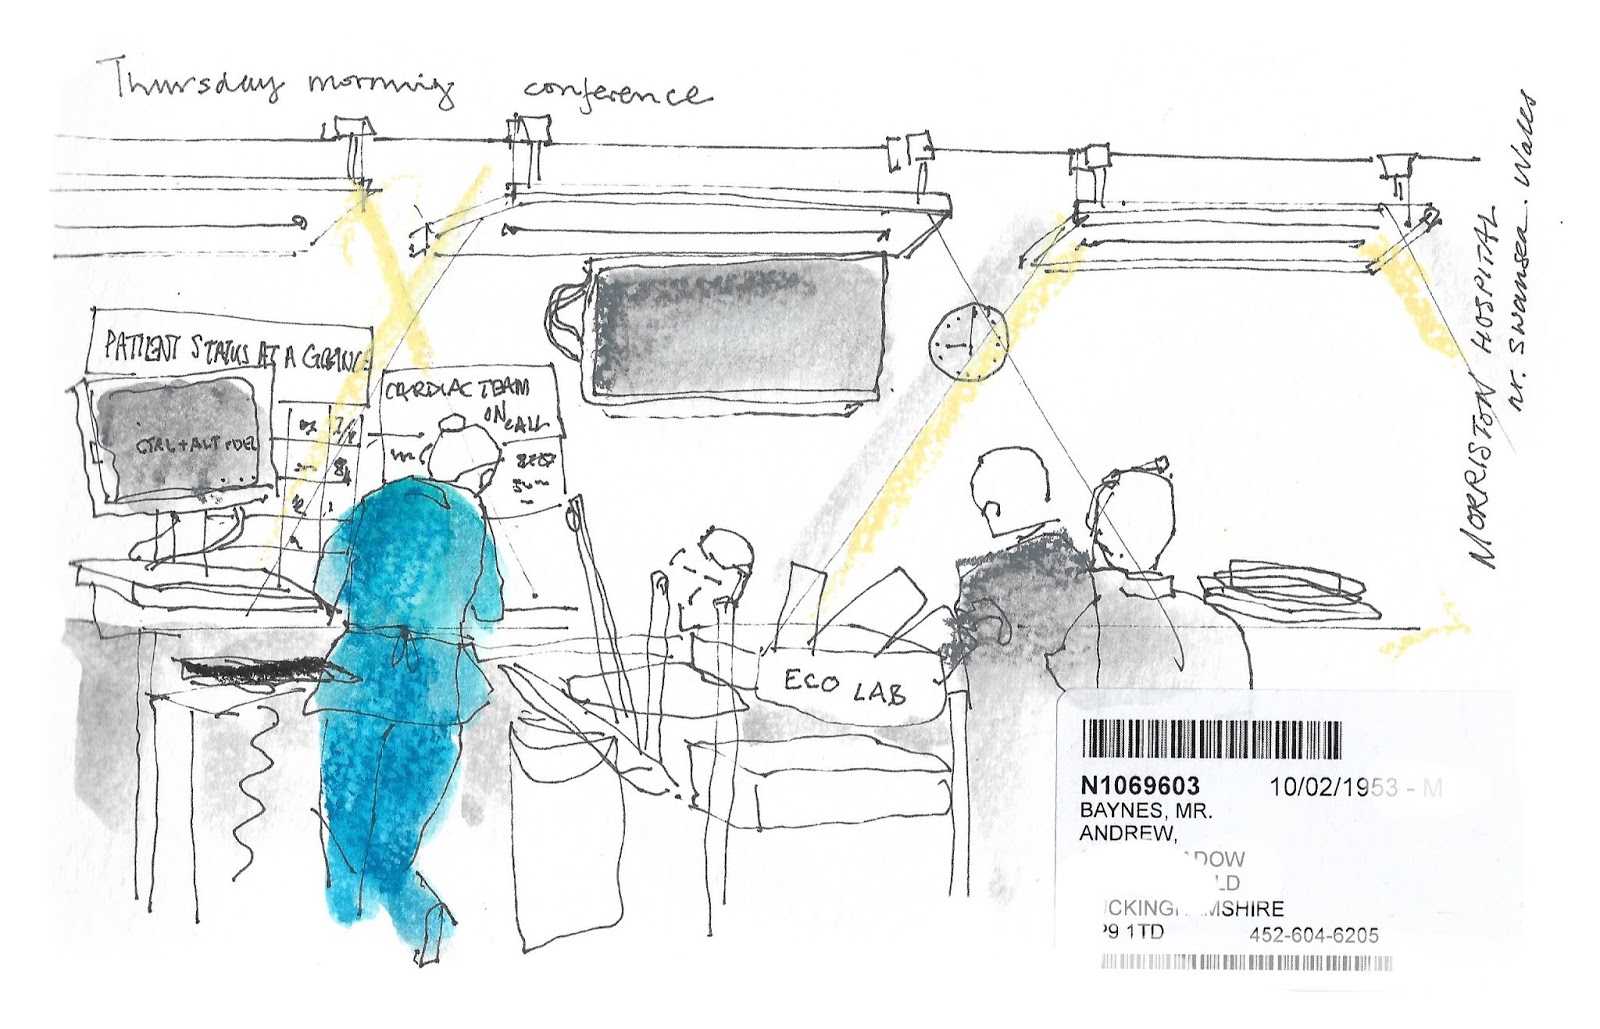 Thursday morning conference
PATIENT STATUS AT A GLANCE
CTRL+ALT+DEL
CARDIAC TEAM
ON CALL
ECO LAB
MORRISTON HOSPITAL
nr. Swansea. Wales
N1069603 10/02/1953 - M
BAYNES, MR.
ANDREW,
ADOW
LD
UCKINGHAMSHIRE
P9 1TD 452-604-6205